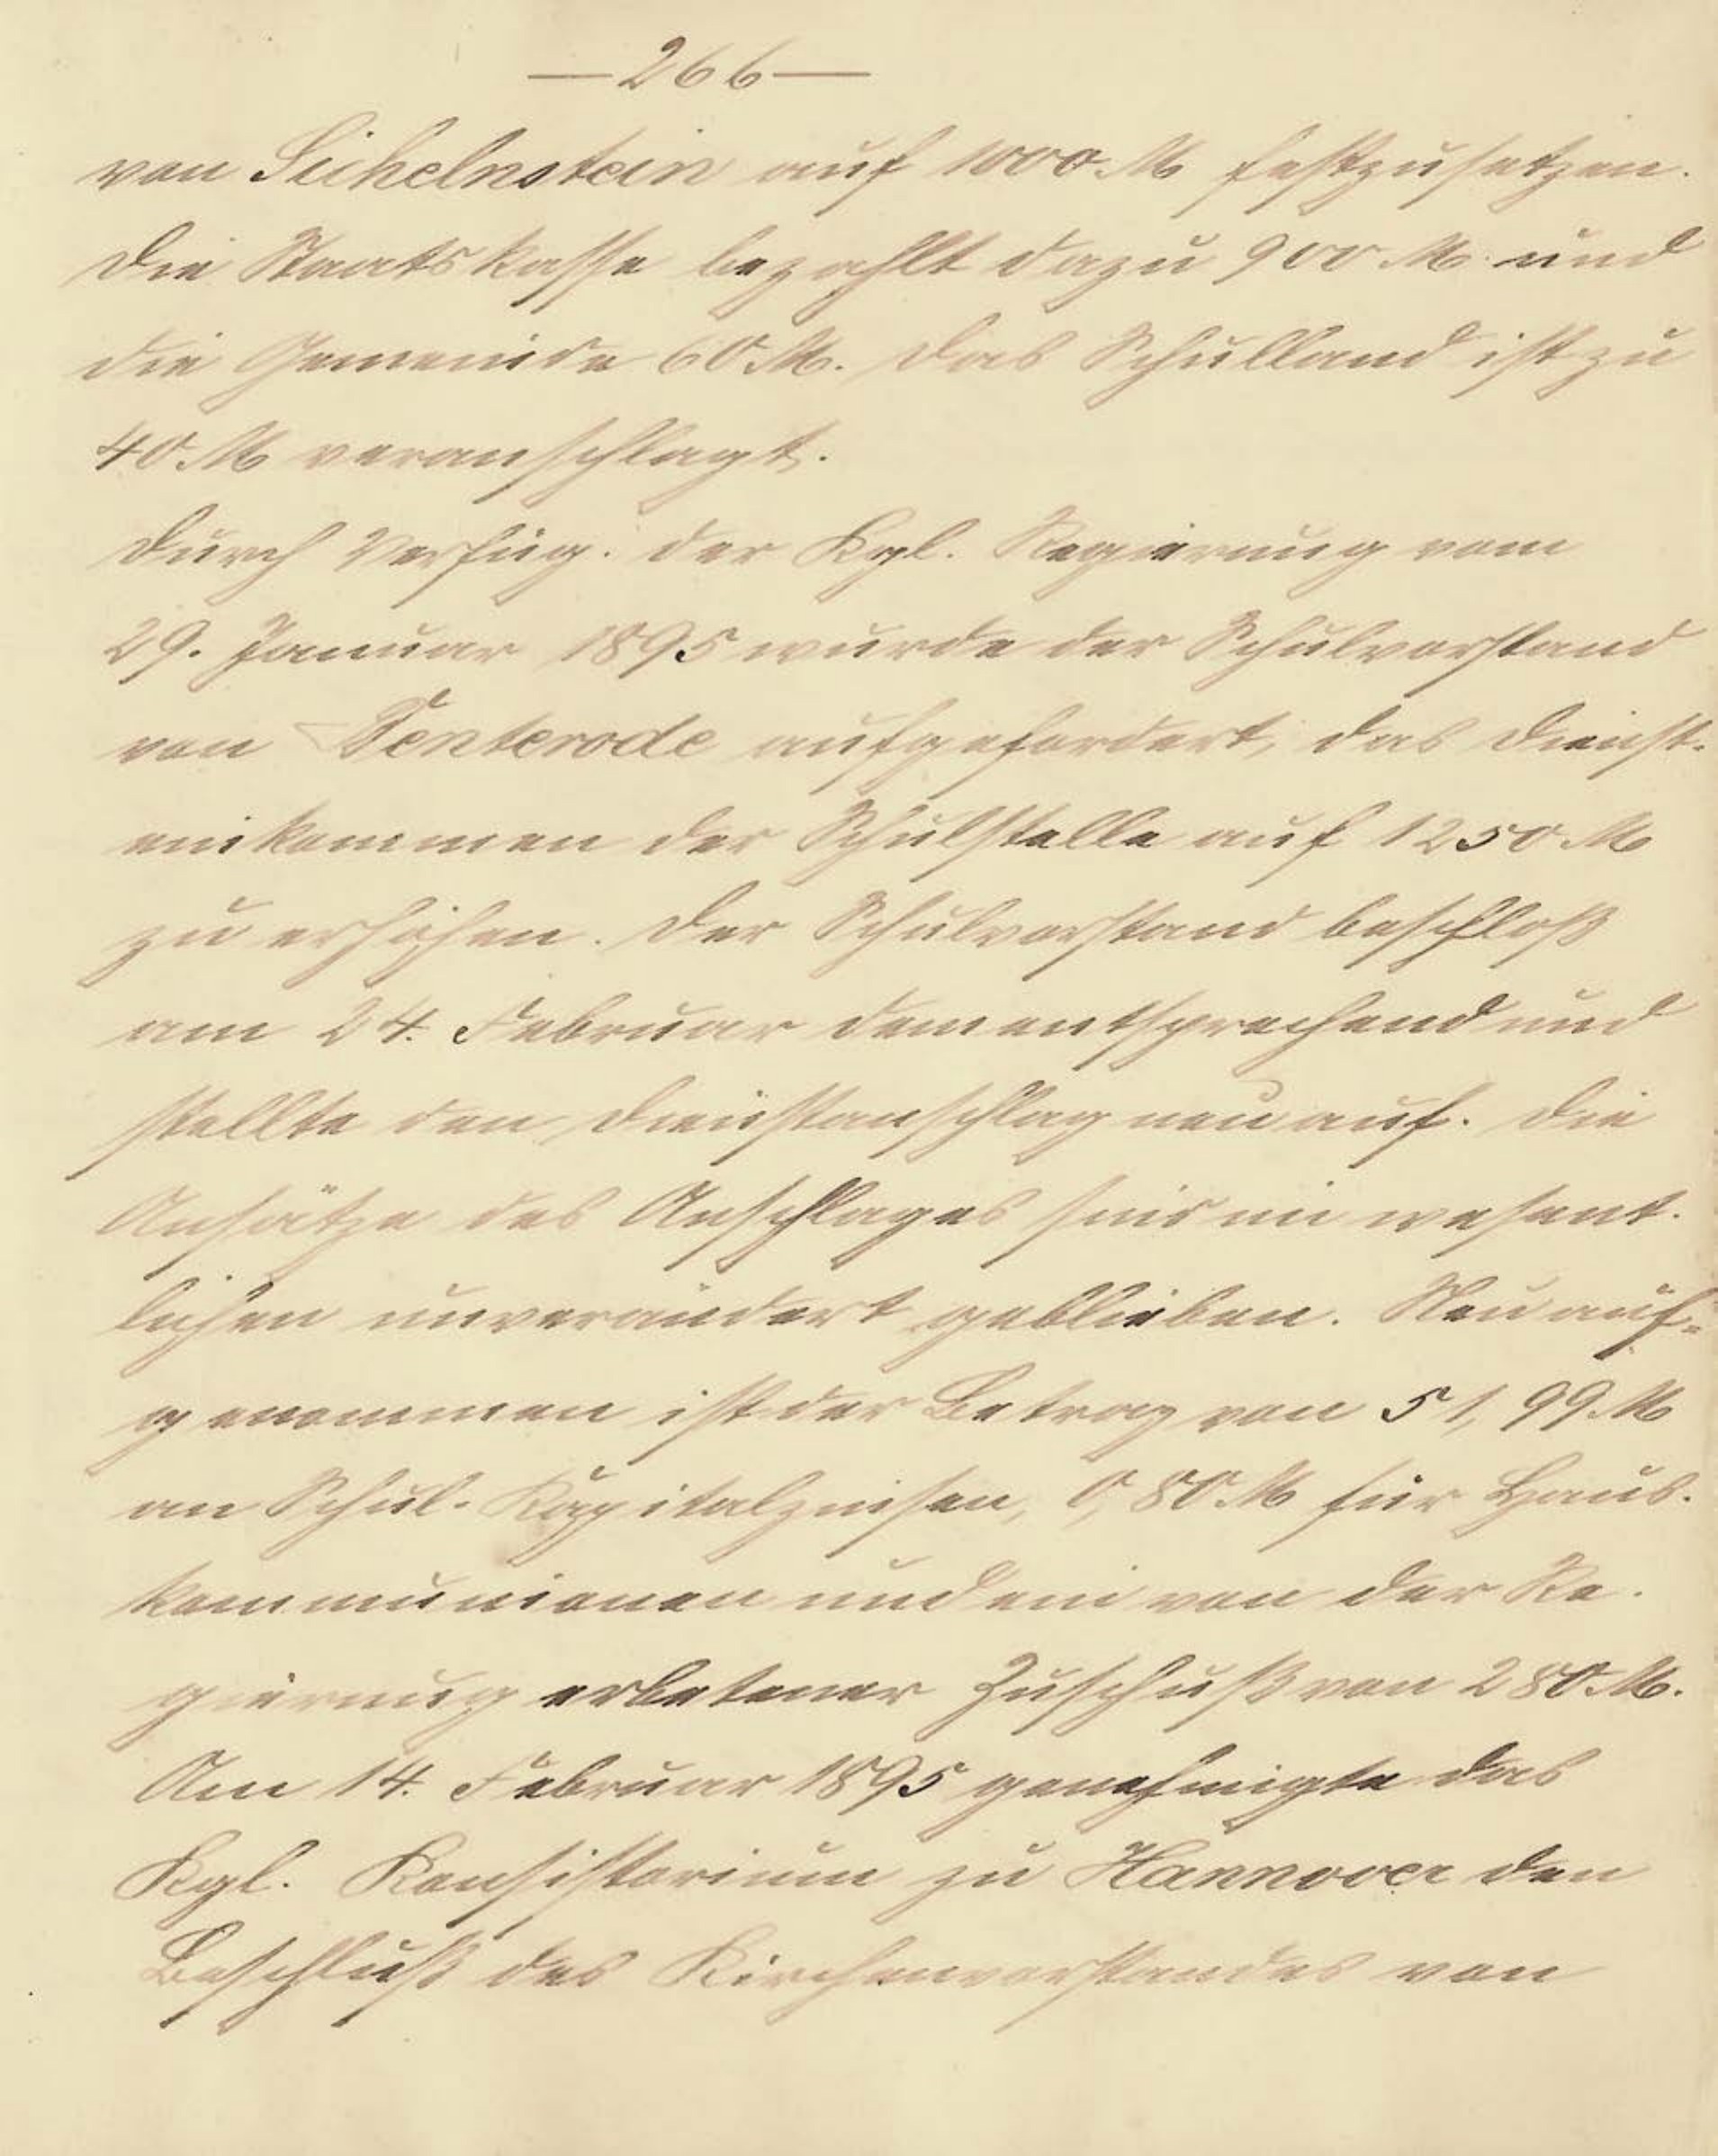 — 266 —
von Sichelnstein auf 1000 M festzusetzen.
Die Staatskasse bezahlt dazu 900 M. und
die Gemeinde 60 M. Das Schulland ist zu
40 M veranschlagt.
Durch Verfüg. der Kgl. Regierung vom
29. Januar 1895 wurde der Schulvorstand
von Benterode aufgefordert, das Dienst-
einkommen der Schulstelle auf 1250 M
zu erhöhen. Der Schulvorstand beschloß
am 24. Februar dementsprechend und
stellte den Dienstanschlag neu auf. Die
Ansätze des Anschlages sind im wesent-
lichen unverändert geblieben. Neu auf-
genommen ist der Betrag von 51,99 M
an Schul-Kapitalzinsen, 0,80 M für Haus-
kommunionen und ein von der Re-
gierung erbetener Zuschuß von 280 M.
Am 14. Februar 1895 genehmigte das
Kgl. Konsistorium zu Hannover den
Beschluß des Kirchenvorstandes von